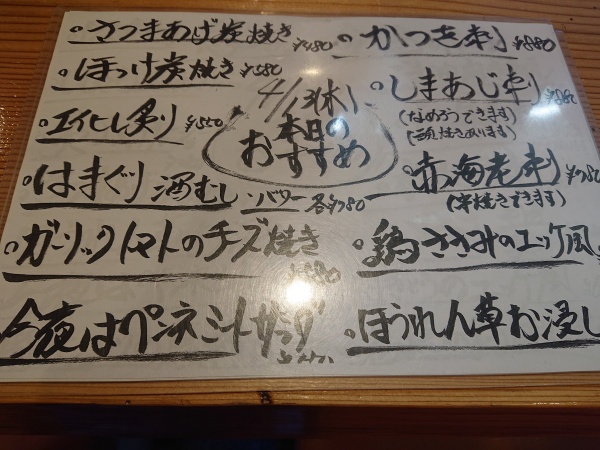 さつまあげ炭焼き ¥480
ほっけ炭焼き ¥580
エイヒレ炙り ¥550
はまぐり酒むし・バター 各¥780
ガーリックトマトのチーズ焼き
今夜はペンネミートサラダ
4/13(木)
本日の
おすすめ
かつを刺 ¥880
しまあじ刺
(なめろうできます)
赤海老刺 ¥780
(串焼きできます)
鶏ささみのユッケ風
ほうれん草お浸し